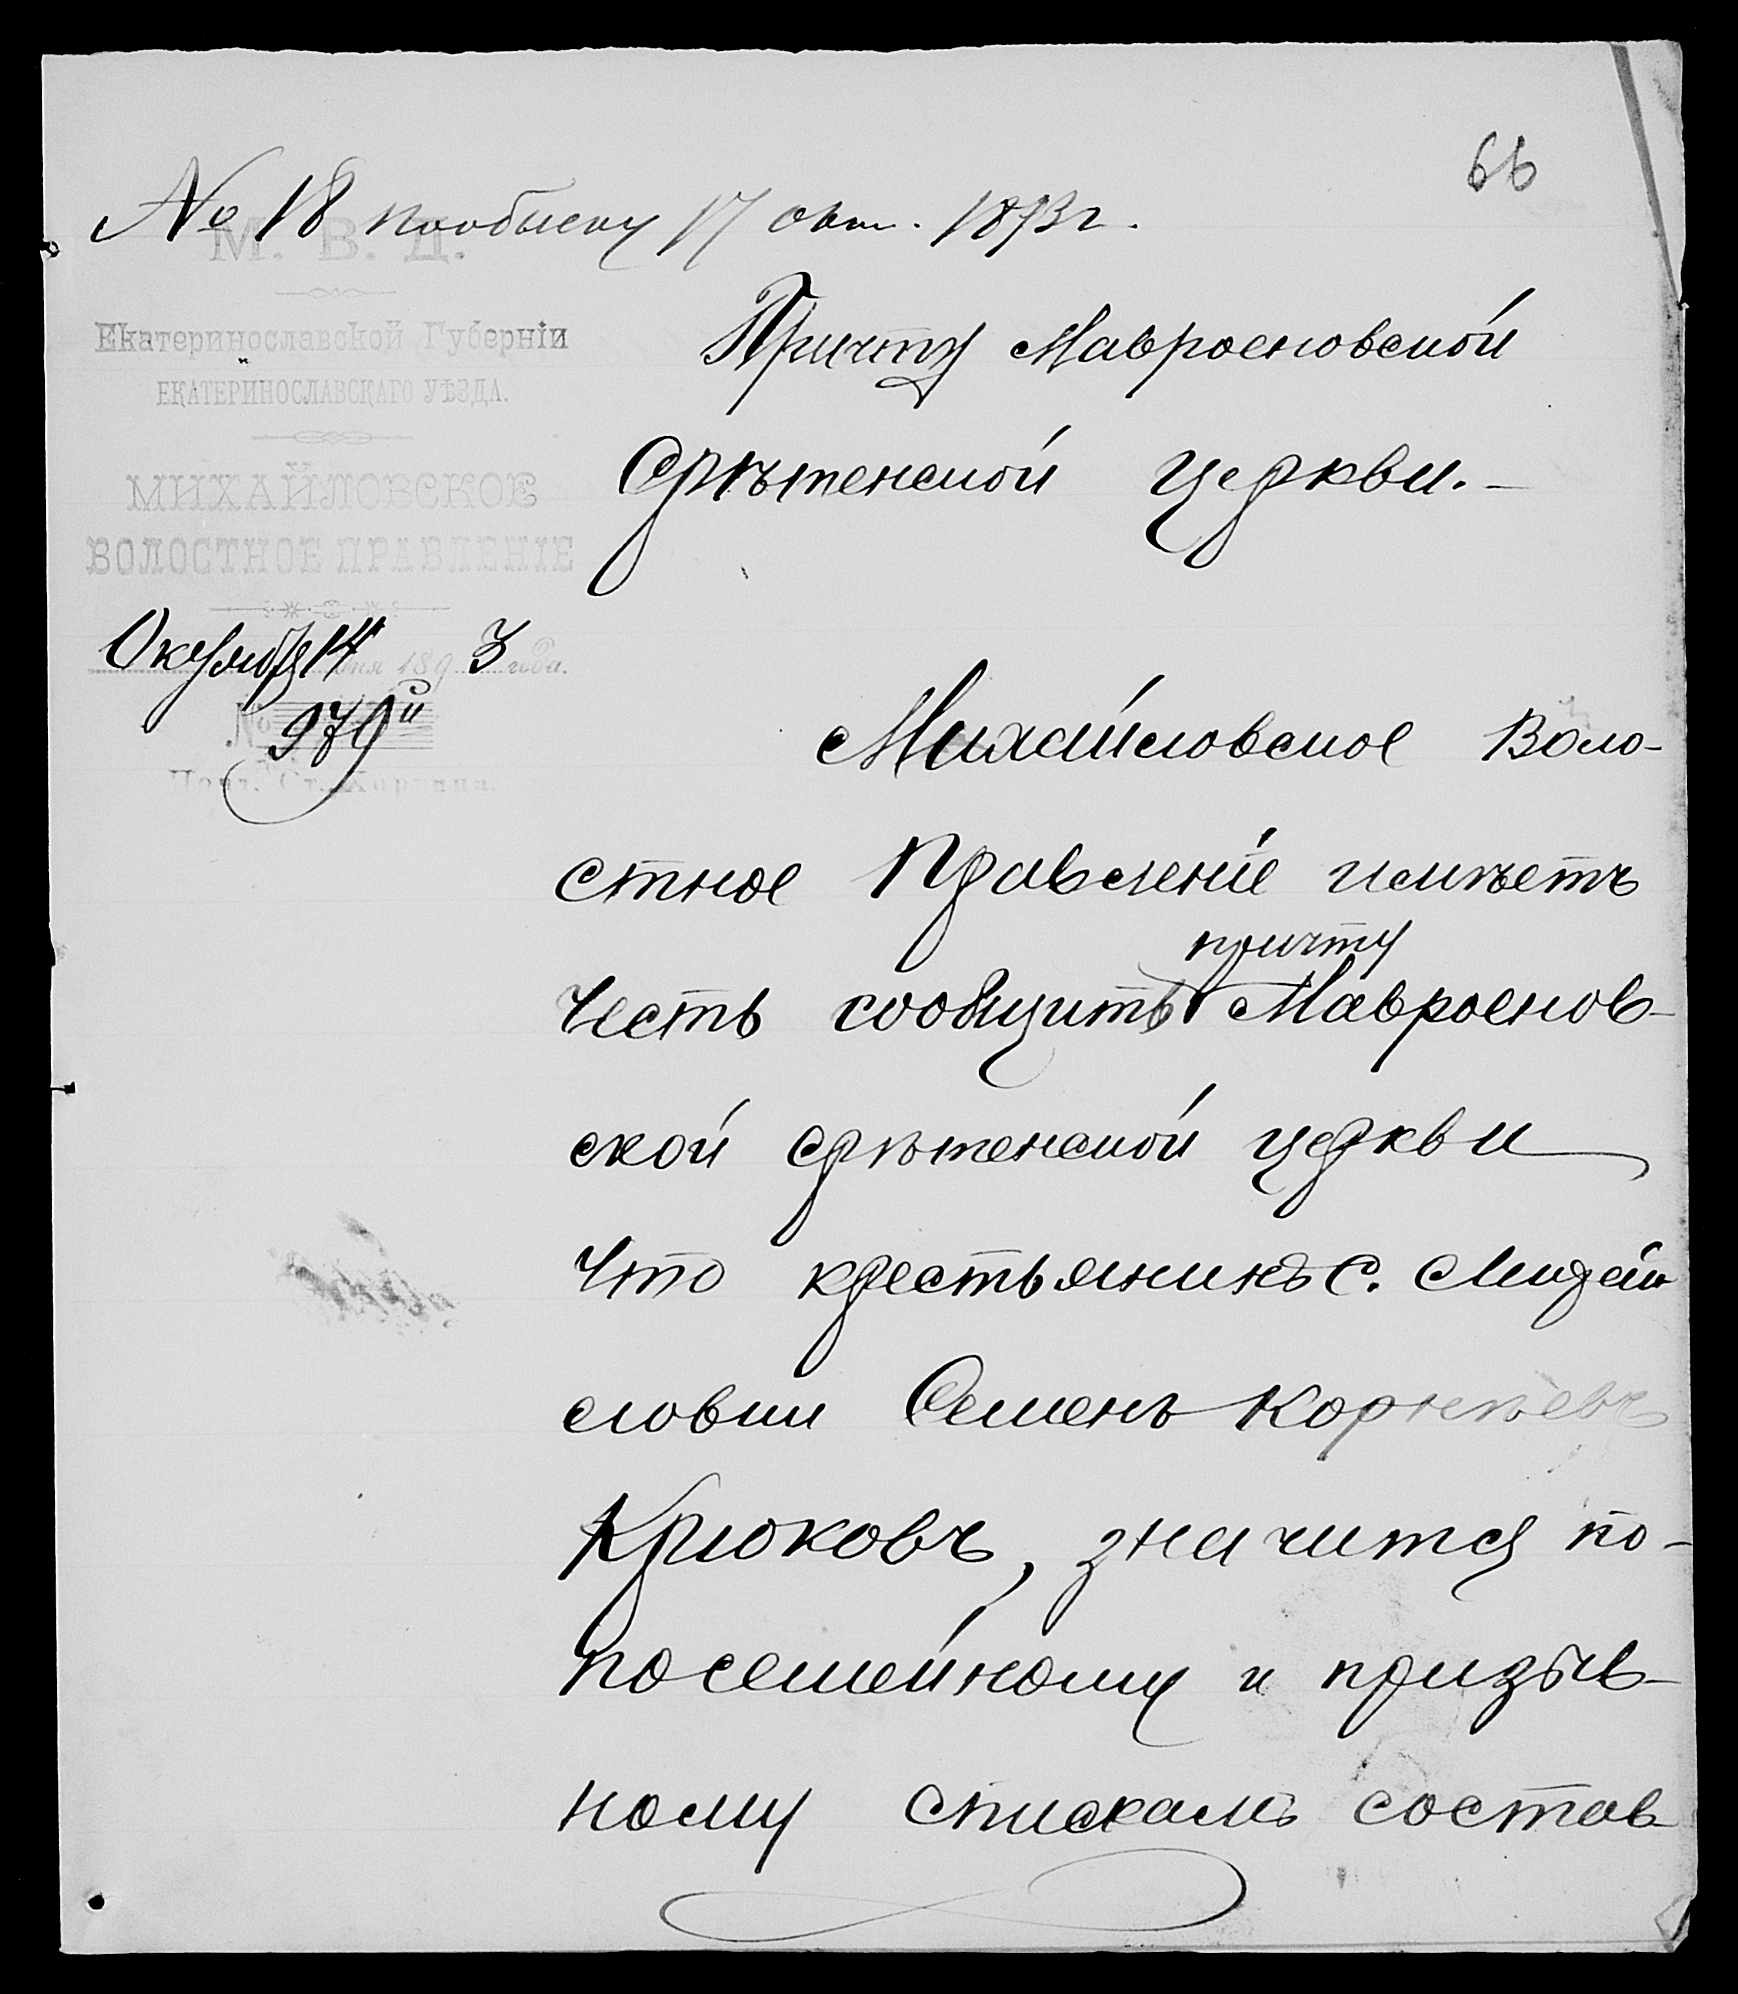 66
№ 18 по обыску 17 окт. 1893 г.
М. В. Д.
Екатеринославской Губерніи
ЕКАТЕРИНОСЛАВСКАГО УѢЗДА.
МИХАЙЛОВСКОЕ
ВОЛОСТНОЕ ПРАВЛЕНІЕ
Октября 14 дня 1893 года.
№ 979
Почт. Ст.
Причту Мавроеновской
Срѣтенской Церкви.-
Михайловское Воло-
стное Правленіе имѣетъ
причту
Честь сообщить Мавроенов-
ской срѣтенской церкви
Что крестьянинъ с. Михай
ловки Семенъ Корнѣевъ
Крюковъ, значится по-
посемейному и призыв-
ному спискамъ состав